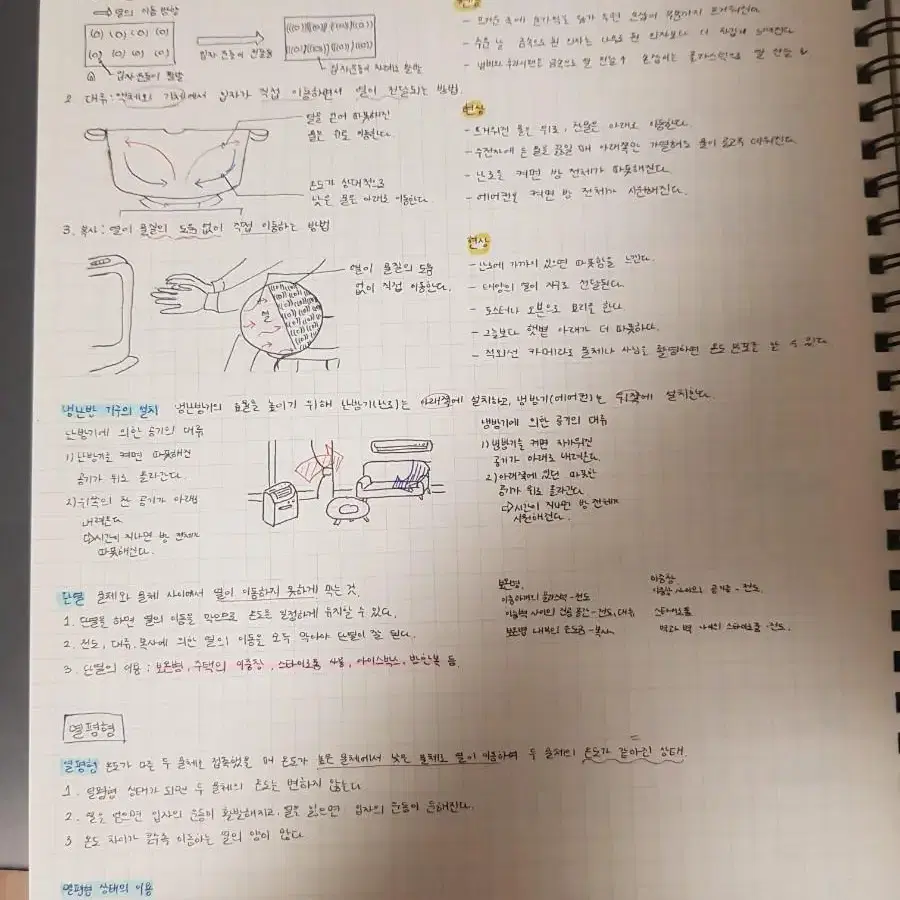 ⇒열의 이동 방향
입자운동이 활발
입자 운동이 활발
2. 대류: 액체와 기체에서 입자가 직접 이동하면서 열이 전달되는 방법.
열을 얻어 따뜻해진
물은 위로 이동한다.
온도가 상대적으로
낮은 물은 아래로 이동한다.
현상
- 뜨거워진 물은 위로, 찬물은 아래로 이동한다.
- 주전자에 든 물을 끓일 때 아래쪽만 가열해도 물이 골고루 데워진다.
- 난로를 켜면 방 전체가 따뜻해진다.
- 에어컨을 켜면 방 전체가 시원해진다.
3. 복사: 열이 물질의 도움 없이 직접 이동하는 방법
열
열이 물질의 도움
없이 직접 이동한다.
현상
- 난로에 가까이 있으면 따뜻함을 느낀다.
- 태양의 열이 지구로 전달된다.
- 토스터나 오븐으로 요리를 한다
- 그늘보다 햇볕 아래가 더 따뜻하다.
- 적외선 카메라로 물체나 사람을 촬영하면 온도 분포를 알 수 있다
냉난방 기구의 설치 냉난방기의 효율을 높이기 위해 난방기(난로)는 아래쪽에 설치하고, 냉방기(에어컨)는 위쪽에 설치한다.
난방기에 의한 공기의 대류
1) 난방기를 켜면 따뜻해진
공기가 위로 올라간다.
2) 위쪽의 찬 공기가 아래로
내려온다
⇒시간이 지나면 방 전체가
따뜻해진다.
냉방기에 의한 공기의 대류
1) 냉방기를 켜면 차가워진
공기가 아래로 내려온다.
2) 아래쪽에 있던 따뜻한
공기가 위로 올라간다
⇒시간이 지나면 방 전체가
시원해진다.
단열 물체와 물체 사이에서 열이 이동하지 못하게 막는 것.
1. 단열을 하면 열의 이동을 막으므로 온도를 일정하게 유지할 수 있다.
2. 전도, 대류, 복사에 의한 열의 이동을 모두 막아야 단열이 잘 된다.
3. 단열의 이용: 보온병, 주택의 이중창, 스타이로폼 사용, 아이스박스, 방한복 등.
보온병.
이중마개의 플라스틱 - 전도
이중벽 사이의 진공 공간 - 전도, 대류
보온병 내부의 은도금 - 복사.
이중창.
이중창 사이의 공기층 - 전도.
스타이로폼
벽과 벽 사이의 스타이로폼 - 전도.
열평형
열평형 온도가 다른 두 물체를 접촉했을 때 온도가 높은 물체에서 낮은 물체로 열이 이동하여 두 물체의 온도가 같아진 상태.
1. 열평형 상태가 되면 두 물체의 온도는 변하지 않는다
2. 열을 얻으면 입자의 운동이 활발해지고, 열을 잃으면 입자의 운동이 둔해진다.
3 온도 차이가 클수록 이동하는 열의 양이 많다
열평형 상태의 이용